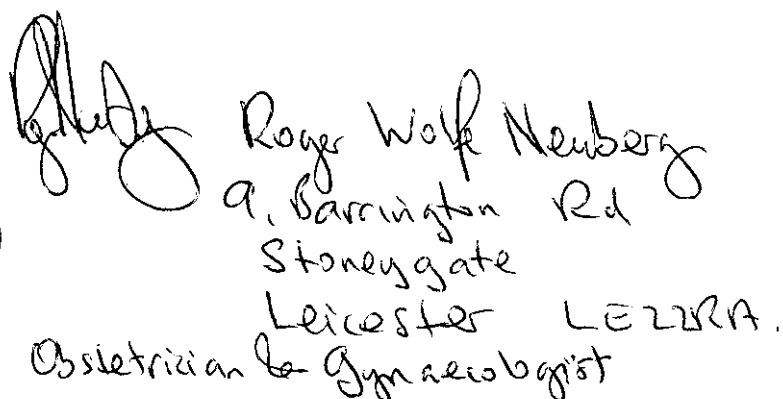 Roger Wolfe Neuberg
9, Barrington Rd
Stoneygate
Leicester LE22RA.
Obstetrician & Gynaecologist